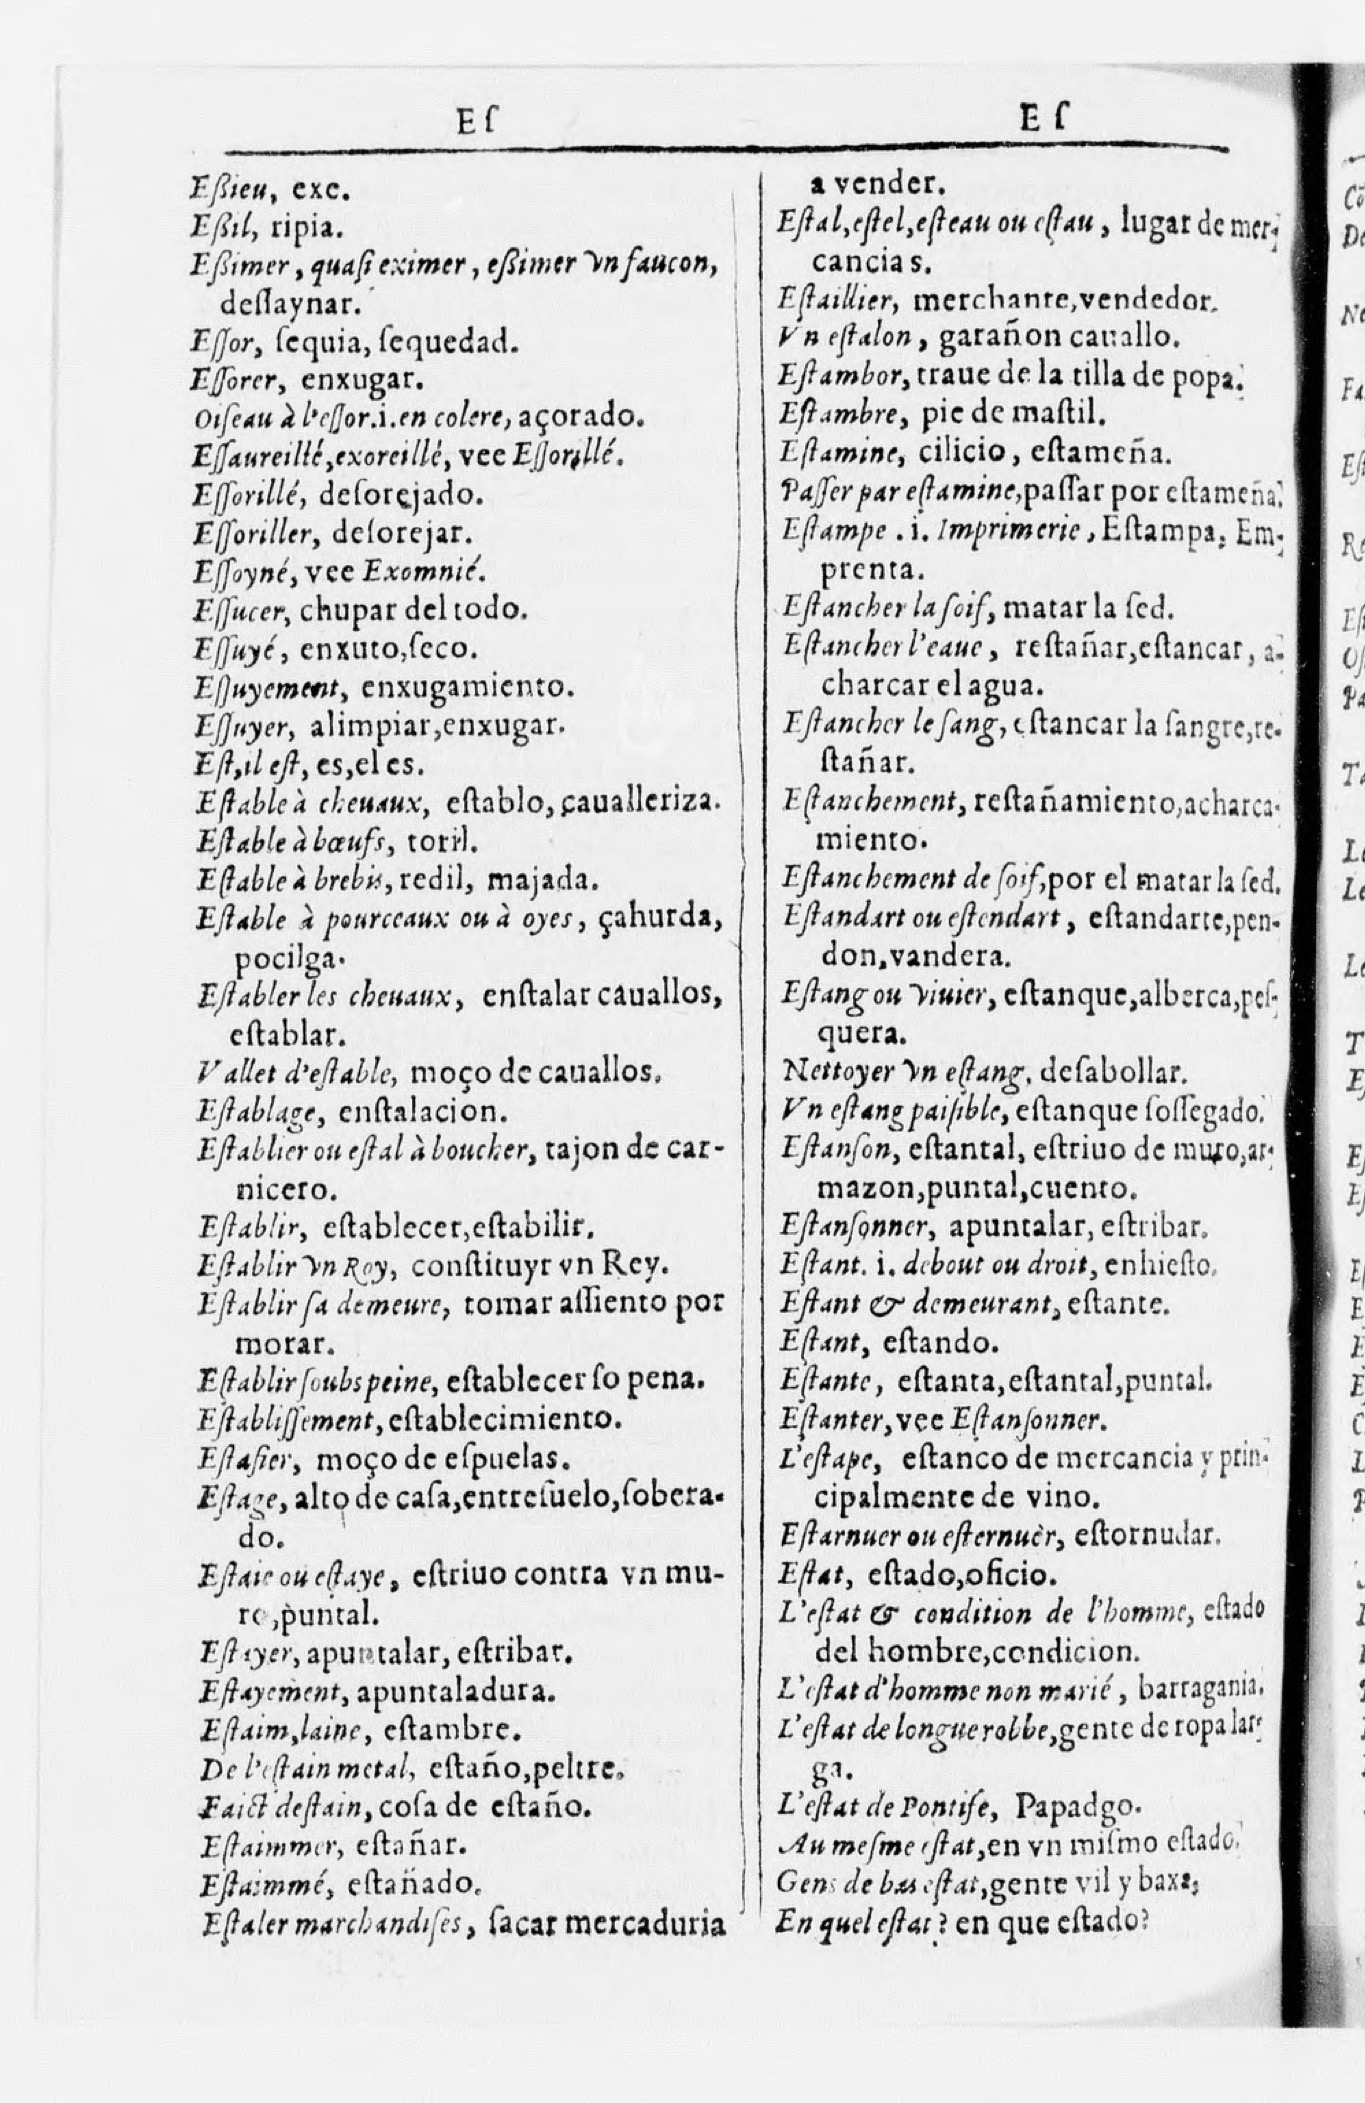 Eſ
Eßieu, exe.
Eßil, ripia.
Eßimer, quaſi eximer, eßimer vn faucon,
deſſaynar.
Eſſor, ſequia, ſequedad.
Eſſorer, enxugar.
Oiſeau à l'eſſor.i.en colere, açorado.
Eſſaureillé,exoreillé, vee Eſſorillé.
Eſſorillé, deſorejado.
Eſſoriller, deſorejar.
Eſſoyné, vee Exomnié.
Eſſucer, chupar del todo.
Eſſuyé, enxuto,ſeco.
Eſſuyement, enxugamiento.
Eſſuyer, alimpiar,enxugar.
Eſt,il eſt, es,el es.
Eſtable à cheuaux, eſtablo, çaualleriza.
Eſtable à bœufs, toril.
Eſtable à brebis, redil, majada.
Eſtable à pourceaux ou à oyes, çahurda,
pocilga.
Eſtabler les cheuaux, enſtalar cauallos,
eſtablar.
Vallet d'eſtable, moço de cauallos.
Eſtablage, enſtalacion.
Eſtablier ou eſtal à boucher, tajon de car-
nicero.
Eſtablir, eſtablecer,eſtabilir.
Eſtablir vn Roy, conſtituyr vn Rey.
Eſtablir ſa demeure, tomar aſſiento por
morar.
Eſtablir ſoubs peine, eſtablecer ſo pena.
Eſtabliſſement, eſtablecimiento.
Eſtafier, moço de eſpuelas.
Eſtage, alto de caſa,entreſuelo,ſobera-
do.
Eſtaie ou eſtaye, eſtriuo contra vn mu-
ro,puntal.
Eſtayer, apuntalar, eſtribar.
Eſtayement, apuntaladura.
Eſtaim,laine, eſtambre.
De l'eſtain metal, eſtaño,peltre.
Faict deſtain, coſa de eſtaño.
Eſtaimmer, eſtañar.
Eſtaimmé, eſtañado.
Eſtaler marchandiſes, ſacar mercaduria
Eſ
a vender.
Eſtal,eſtel,eſteau ou eſtau, lugar de mer-
cancias.
Eſtaillier, merchante,vendedor.
Vn eſtalon, garañon cauallo.
Eſtambor, traue de la tilla de popa.
Eſtambre, pie de maſtil.
Eſtamine, cilicio, eſtameña.
Paſſer par eſtamine,paſſar por eſtameña.
Eſtampe .i. Imprimerie, Eſtampa, Em-
prenta.
Eſtancher la ſoif, matar la ſed.
Eſtancher l'eaue, reſtañar,eſtancar, a-
charcar el agua.
Eſtancher le ſang, eſtancar la ſangre,re-
ſtañar.
Eſtanchement, reſtañamiento,acharca-
miento.
Eſtanchement de ſoif,por el matar la ſed.
Eſtandart ou eſtendart, eſtandarte,pen-
don,vandera.
Eſtang ou viuier, eſtanque,alberca,peſ-
quera.
Nettoyer vn eſtang, deſabollar.
Vn eſtang paiſible, eſtanque ſoſſegado.
Eſtanſon, eſtantal, eſtriuo de muro,ar-
mazon,puntal,cuento.
Eſtanſonner, apuntalar, eſtribar.
Eſtant. i. debout ou droit, enhieſto.
Eſtant & demeurant, eſtante.
Eſtant, eſtando.
Eſtante, eſtanta,eſtantal,puntal.
Eſtanter, vee Eſtanſonner.
L'eſtape, eſtanco de mercancia y prin-
cipalmente de vino.
Eſtarnuer ou eſternuèr, eſtornudar.
Eſtat, eſtado,oficio.
L'eſtat & condition de l'homme, eſtado
del hombre,condicion.
L'eſtat d'homme non marié, barragania.
L'eſtat de longue robbe,gente de ropa lar-
ga.
L'eſtat de Pontife, Papadgo.
Au meſme eſtat,en vn miſmo eſtado.
Gens de bas eſtat,gente vil y baxa,
En quel eſtat? en que eſtado?